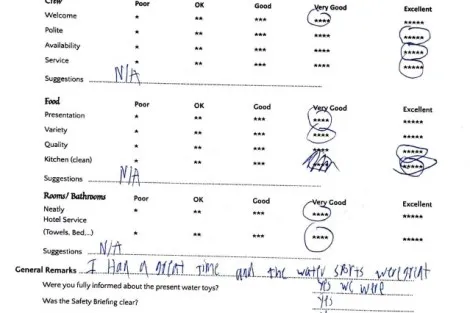 Crew Poor OK Good Very Good Excellent
Welcome * ** *** **** *****
Polite * ** *** **** *****
Availability * ** *** **** *****
Service * ** *** **** *****
Suggestions N/A
Food Poor OK Good Very Good Excellent
Presentation * ** *** **** *****
Variety * ** *** **** *****
Quality * ** *** **** *****
Kitchen (clean) * ** *** **** *****
Suggestions N/A
Rooms/ Bathrooms Poor OK Good Very Good Excellent
Neatly * ** *** **** *****
Hotel Service
(Towels, Bed,..) * ** *** **** *****
Suggestions N/A
General Remarks I Had a great time and the water sports were great
Were you fully informed about the present water toys? Yes we were
Was the Safety Briefing clear? Yes